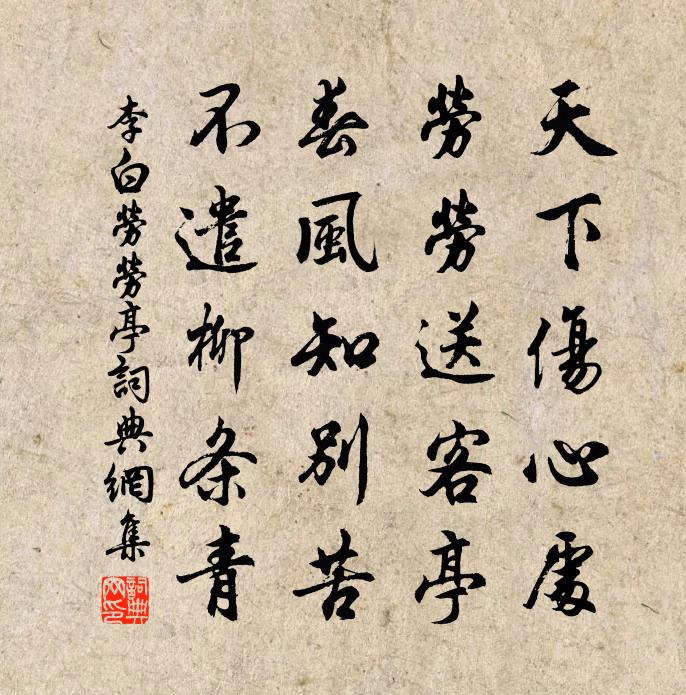 天下傷心處
勞勞送客亭
春風知別苦
不遣柳条青
李白勞勞亭詞典網集
詞典網印